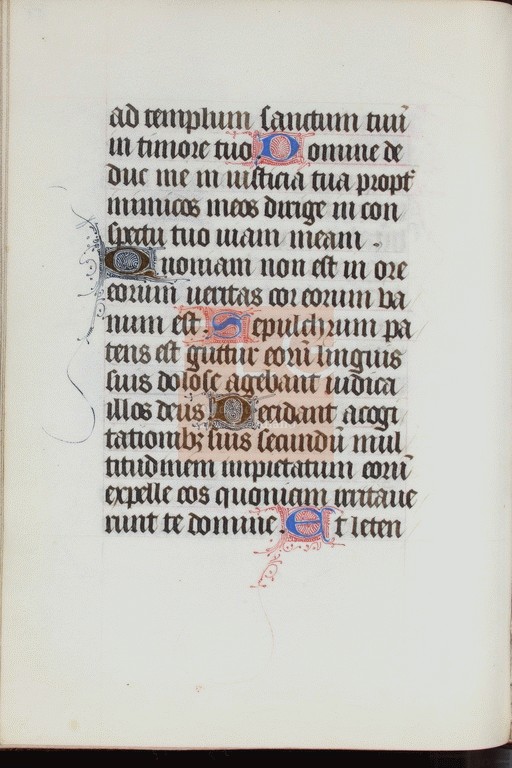 ad templum sanctum tuū
in timore tuo Domine de
duc me in iusticia tua propt̄
inimicos meos dirige in con
spectu tuo uiam meam .
Quoniam non est in ore
eorum ueritas cor eorum va
num est. Sepulchrum pa
tens est guttur eorū linguis
suis dolose agebant iudica
illos deus Decidant a cogi
tationibꝫ suis secundū mul
titudinem impietatum eorū
expelle eos quoniam irritaue
runt te domine. Et leten